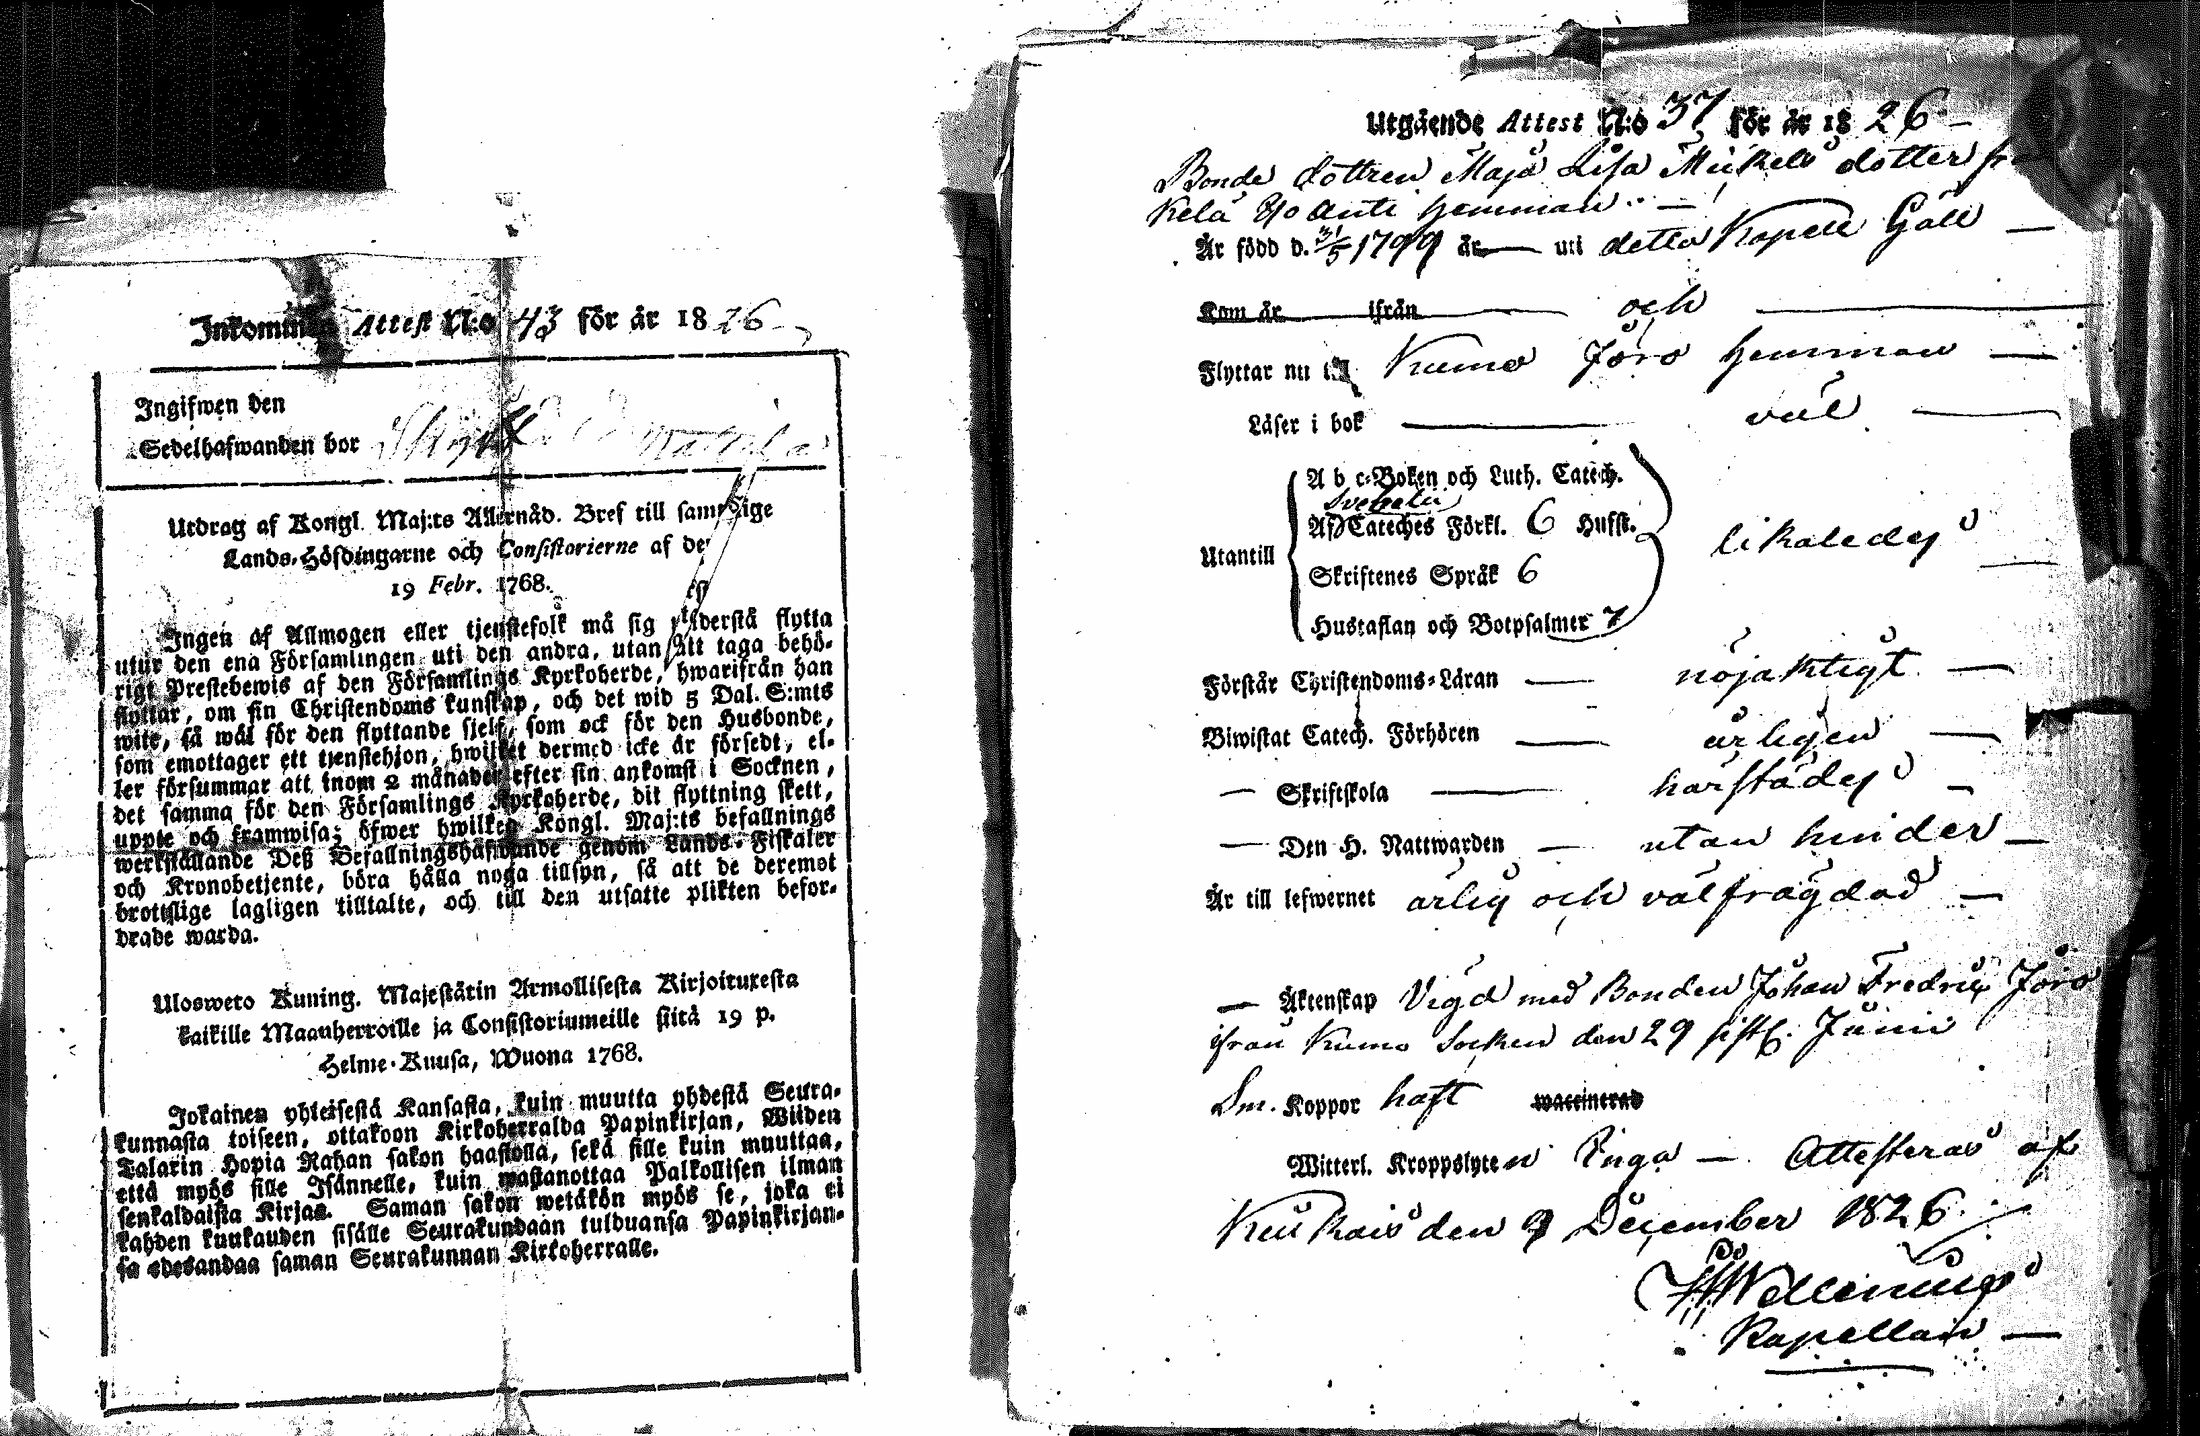 Inkommen Attest N:o 43 för år 1826
Ingifwen den
Sedelhafwanden bor
Utdrag af Kongl. Maj:ts Allernåd. Bref till samtelige
Lands-Höfdingarne och Consistorierne af den
19 Febr. 1768.
Ingen af Allmogen eller tjenstefolk må sig understå flytta
utur den ena Församlingen uti den andra, utan att taga behö-
rigt Prestebewis af den Församlings Kyrkoherde, hwarifrån han
flyttar, om sin Christendoms kunskap, och det wid 5 Dal. S:mts
wite, så wäl för den flyttande sjelf, som ock för den Husbonde,
som emottager ett tjenstehjon, hwilket dermed icke är försedt, el-
ler försummar att inom 2 månader efter sin ankomst i Socknen,
det samma för den Församlings Kyrkoherde, dit flyttning skett,
uppte och framwisa; öfwer hwilken Kongl. Maj:ts befallnings
werkställande Deß Befallningshafwande genom Lands-Fiskaler
och Kronobetjente, böra hålla noga tillsyn, så att de deremot
brottslige lagligen tilltalte, och till den utsatte plikten befor-
drade warda.
Ulosweto Kuning. Majestätin Armollisesta Kirjoituxesta
kaikille Maanherroille ja Consistoriumeille siitä 19 p.
Helme-Kuusa, Wuona 1768.
Jokainen yhteisestä Kansasta, kuin muutta yhdestä Seura-
kunnasta toiseen, ottakoon Kirkoherralda Papinkirjan, Wiiden
Talarin Hopia Rahan sakon haastolla, sekä sille kuin muuttaa,
että myös sille Isännelle, kuin wastanottaa Palkollisen ilman
senkaldaista Kirjaa. Saman sakon wetäkön myös se, joka ei
kahden kuukauden sisälle Seurakundaan tulduansa Papinkirjan-
sa edesandaa saman Seurakunnan Kirkoherralle.
Utgående Attest N:o 37 för år 1826
Bonde dottren Maja Lisa Mickels dotter
Anti hemman
Är född d. 31/5 1799 år uti detta Kapell Gäll
Kom år ifrån och
Flyttar nu till Kumo Jöro hemman
Läser i bok väl
A b c-Boken och Luth. Catech.
Svebelii
Af Cateches Förkl. 6 Hufst.
Utantill likaledes
Skriftenes Språk 6
Hustaflan och Botpsalmer 7
Förstår Christendoms-Läran nöjaktigt
Biwistat Catech. Förhören årligen
Skriftskola härstädes
Den H. Nattwarden utan hinder
Är till lefwernet ärlig och välfrägdad
Äktenskap Vigd med Bonden Johan Fredric Jöro
ifrån Kumo Socken den 29 sistl. Junii
Sm. Koppor haft waccinerad
Witterl. Kroppslyten inga Attesteras af
Keu kais den 9 December 1826
Kapellan